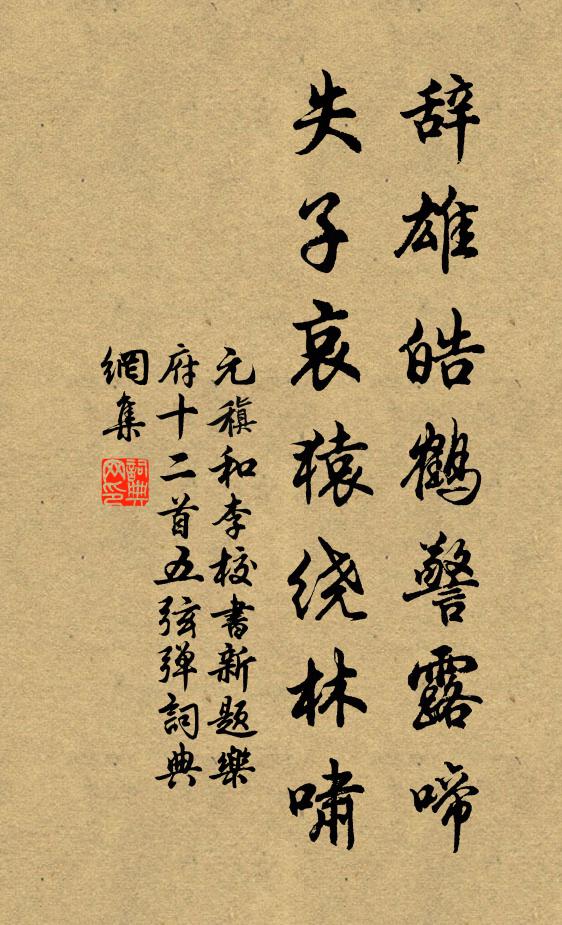 辞雄皓鹤警露啼
失子哀猿绕林啸
元稹和李校書新题樂
府十二首五弦弹詞典
網集
詞典
网印